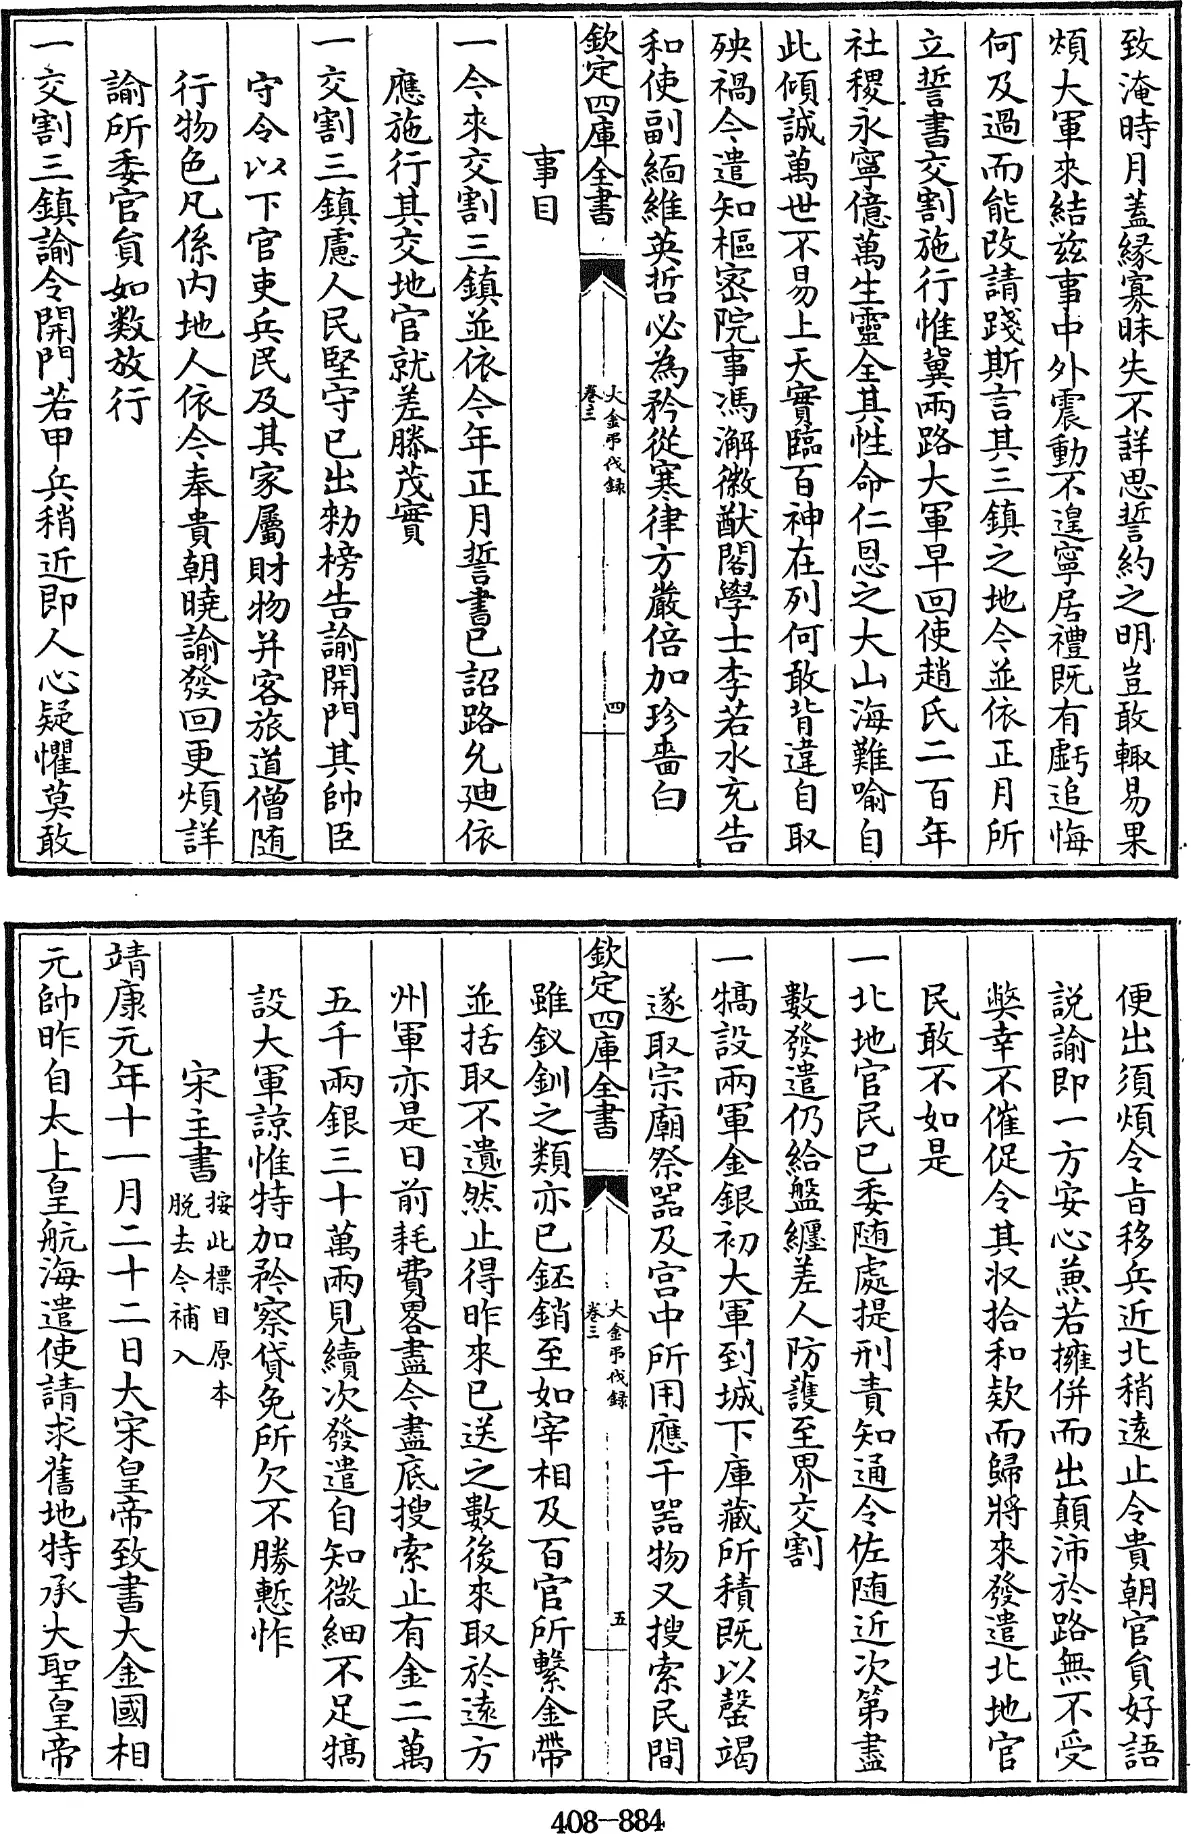 致淹時月蓋縁寡昧失不詳思誓約之明豈敢輙易果
煩大軍來結兹事中外震動不遑寧居禮既有虧追悔
何及過而能改請踐斯言其三鎮之地令並依正月所
立誓書交割施行惟冀兩路大軍早回使趙氏二百年
社稷永寧億萬生靈全其性命仁恩之大山海難喻自
此傾誠萬世不易上天實臨百神在列何敢背違自取
殃禍今遣知樞密院事馮澥徽猷閣學士李若水充告
和使副緬維英哲必為矜從寒律方嚴倍加珍嗇白
欽定四庫全書
大金弔伐録
卷三
四
事目
一今來交割三鎮並依今年正月誓書已詔路允廸依
應施行其交地官就差滕茂實
一交割三鎮慮人民堅守已出勅榜告諭開門其帥臣
守令以下官吏兵民及其家屬財物并客旅道僧随
行物色凡係内地人依今奉貴朝曉諭發回更煩詳
諭所委官員如數放行
一交割三鎮諭令開門若甲兵稍近即人心疑懼莫敢
便出須煩令㫖移兵近北稍逺止令貴朝官員好語
説諭即一方安心兼若擁併而出顛沛於路無不受
獘幸不催促令其収拾和欵而歸將來發遣北地官
民敢不如是
一北地官民已委随處提刑責知通令佐随近次第盡
數發遣仍給盤纒差人防護至界交割
一犒設兩軍金銀初大軍到城下庫藏所積既以罄竭
遂取宗廟祭器及宫中所用應干器物又搜索民間
欽定四庫全書
大金弔伐録
卷三
五
雖釵釧之類亦已鉟銷至如宰相及百官所繫金帶
並括取不遺然止得昨來已送之數後來取於逺方
州軍亦是日前耗費畧盡今盡底搜索止有金二萬
五千兩銀三十萬兩見續次發遣自知微細不足犒
設大軍諒惟特加矜察貸免所欠不勝慙怍
宋主書
按此標目原本
脱去今補入
靖康元年十一月二十二日大宋皇帝致書大金國相
元帥昨自太上皇航海遣使請求舊地特承大聖皇帝
408-884